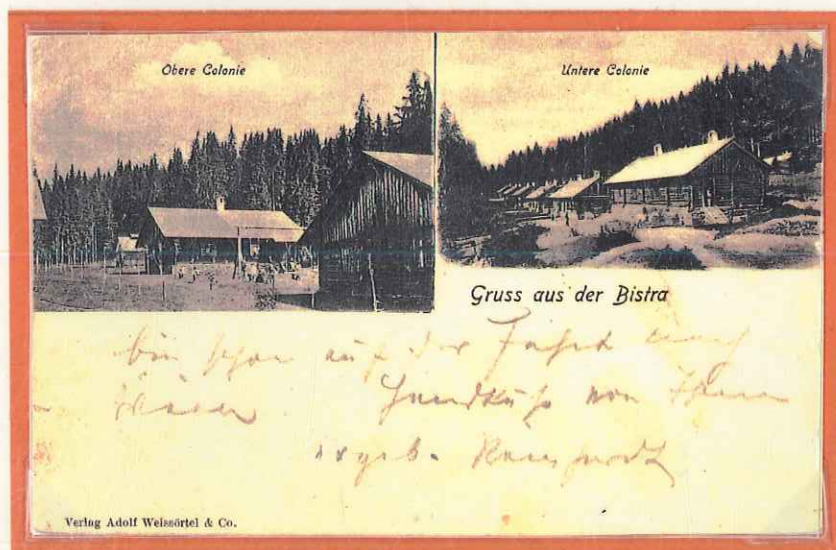 Obere Colonie
Untere Colonie
Gruss aus der Bistra
bin schon auf der Fahrt nach
Handkuß von Ihrem
ergeb.
Verlag Adolf Weissörtel & Co.